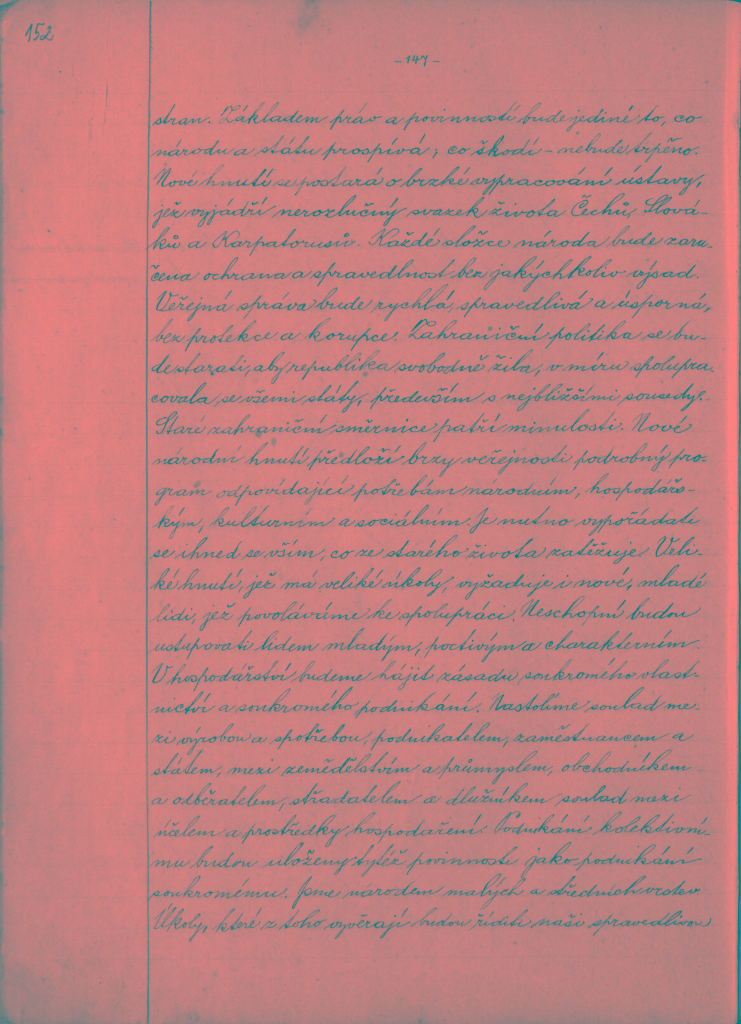 152
- 147 -
stran. Základem práv a povinností bude jedině to, co
národu a státu prospívá; co škodí - nebude trpěno.
Nové hnutí se postará o brzké vypracování ústavy,
jež vyjádří nerozlučný svazek života Čechů, Slová-
ků a Karpatorusů. Každé složce národa bude zaru-
čena ochrana a spravedlnost bez jakýchkoliv výsad.
Veřejná správa bude rychlá, spravedlivá a úsporná,
bez protekce a korupce. Zahraniční politika se bu-
de starati, aby republika svobodně žila, v míru spolupra-
covala se všemi státy, především s nejbližšími sousedy.
Staré zahraniční směrnice patří minulosti. Nové
národní hnutí předloží brzy veřejnosti podrobný pro-
gram odpovídající potřebám národním, hospodářs-
kým, kulturním a sociálním. Je nutno vypořádati
se ihned se vším, co ze starého života zatěžuje. Veli-
ké hnutí, jež má veliké úkoly, vyžaduje i nové, mladé
lidi, jež povoláváme ke spolupráci. Neschopní budou
ustupovati lidem mladým, poctivým a charakterním.
V hospodářství budeme hájit zásadu soukromého vlast-
nictví a soukromého podnikání. Nastolíme soulad me-
zi výrobou a spotřebou, podnikatelem, zaměstnancem a
státem, mezi zemědělstvím a průmyslem, obchodníkem
a odběratelem, střadatelem a dlužníkem soulad mezi
účelem a prostředky hospodaření. Podnikání kolektivní-
mu budou uloženy tytéž povinnosti jako podnikání
soukromému. Jsme národem malých a středních vrstev.
Úkoly, které z toho vyvěrají budou říditi naši spravedlivou